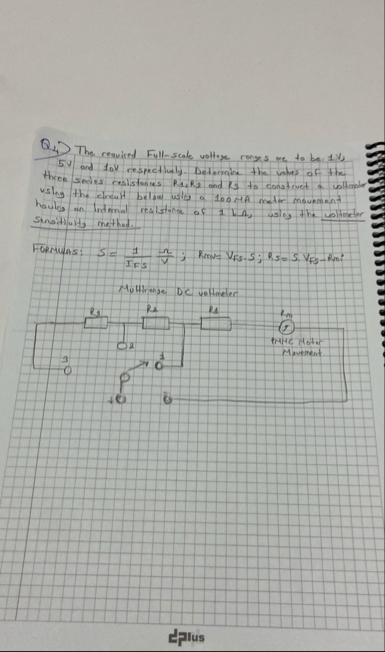 Q4) The required Full-scale voltage ranges are to be 1V,
5V and 10V respectively. Determine the values of the
three series resistances R1, R2 and R3 to construct a voltmeter
using the circuit below using a 100 mA meter movement
having an internal resistance of 1 kΩ, using the voltmeter
sensitivity method.
FORMULAS: S = 1/IFS Ω/V ; Rmv = VFS.S ; Rs = S.VFS - Rm
Multirange DC voltmeter
R3 R2 R1 Rm
PMMC Meter
Movement
3 2 1
+ -
dplus